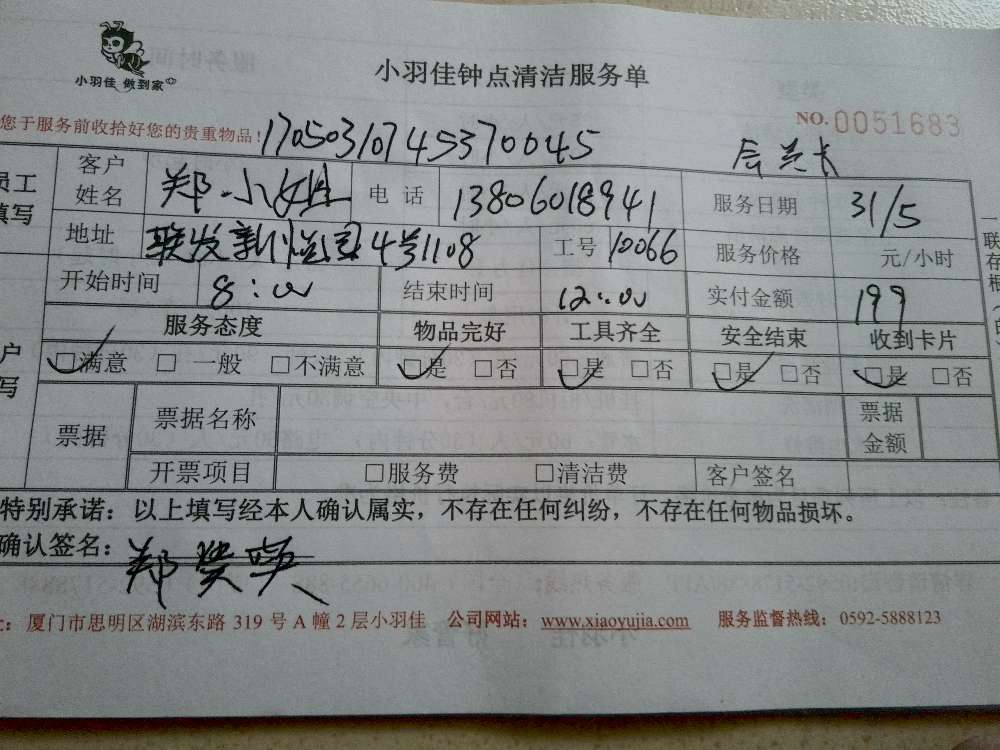 小羽佳 做到家
小羽佳钟点清洁服务单
您于服务前收拾好您的贵重物品!
170503107453700045
NO.0051683
员工填写
客户姓名 郑小姐 电话 13806018941 服务日期 31/5
地址 联发新 4号1108 工号 10066 服务价格 元/小时
开始时间 8:00 结束时间 12:00 实付金额 199
服务态度 物品完好 工具齐全 安全结束 收到卡片
□满意 □一般 □不满意 □是 □否 □是 □否 □是 □否 □是 □否
票据 票据名称 票据金额
开票项目 □服务费 □清洁费 客户签名
特别承诺：以上填写经本人确认属实，不存在任何纠纷，不存在任何物品损坏。
确认签名：郑
厦门市思明区湖滨东路 319 号 A 幢 2 层小羽佳 公司网站：www.xiaoyujia.com 服务监督热线：0592-5888123